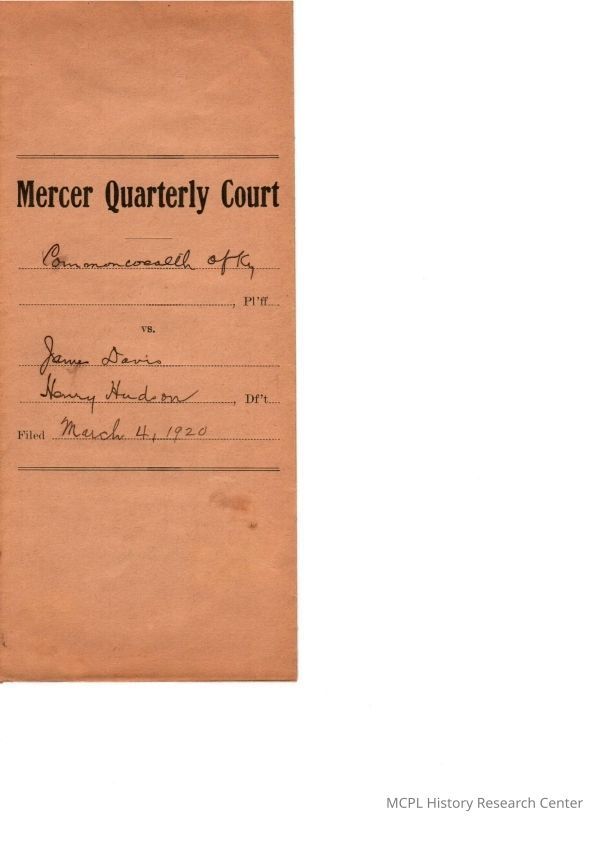 Mercer Quarterly Court
Commonwealth of Ky
, Pl'ff.
vs.
James Davis
Henry Hudson, Df't.
Filed March 4, 1920
MCPL History Research Center